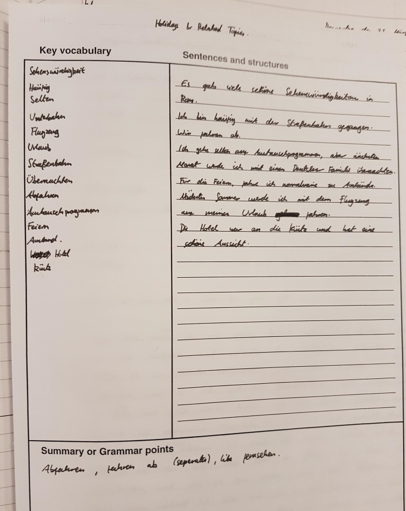 Holidays & Related Topics.
Key vocabulary
Sehenswürdigkeit
Häufig
Selten
Unterbahn
Flugzeug
Urlaub
Straßenbahn
Übernachten
Abfahren
Austauschprogramm
Ferien
Ausland.
Hotel
Küste
Sentences and structures
Es gab viele schöne Sehenswürdigkeiten in
Rom.
Ich bin häufig mit der Straßenbahn gegangen.
Wir fahren ab.
Ich gehe selten aus Austauschprogramm, aber nächsten
Monat werde ich mit einen Familie übernachten.
Für die Ferien, fahre ich normalerweise zu
Nächsten Sommer werde ich mit dem Flugzeug
aus meinen Urlaub fahren.
Das Hotel war an die Küste und hat eine
schöne Aussicht.
Summary or Grammar points
Abfahren, fahren ab (separates), like fernsehen.